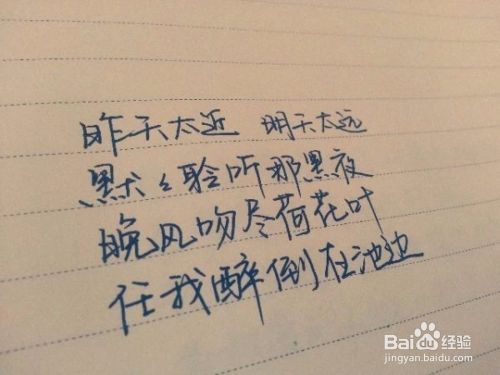 昨天太近 明天太远
默々聆听那黑夜
晚风吻尽荷花叶
任我醉倒在池边
Baidu 经验
jingyan.baidu.com